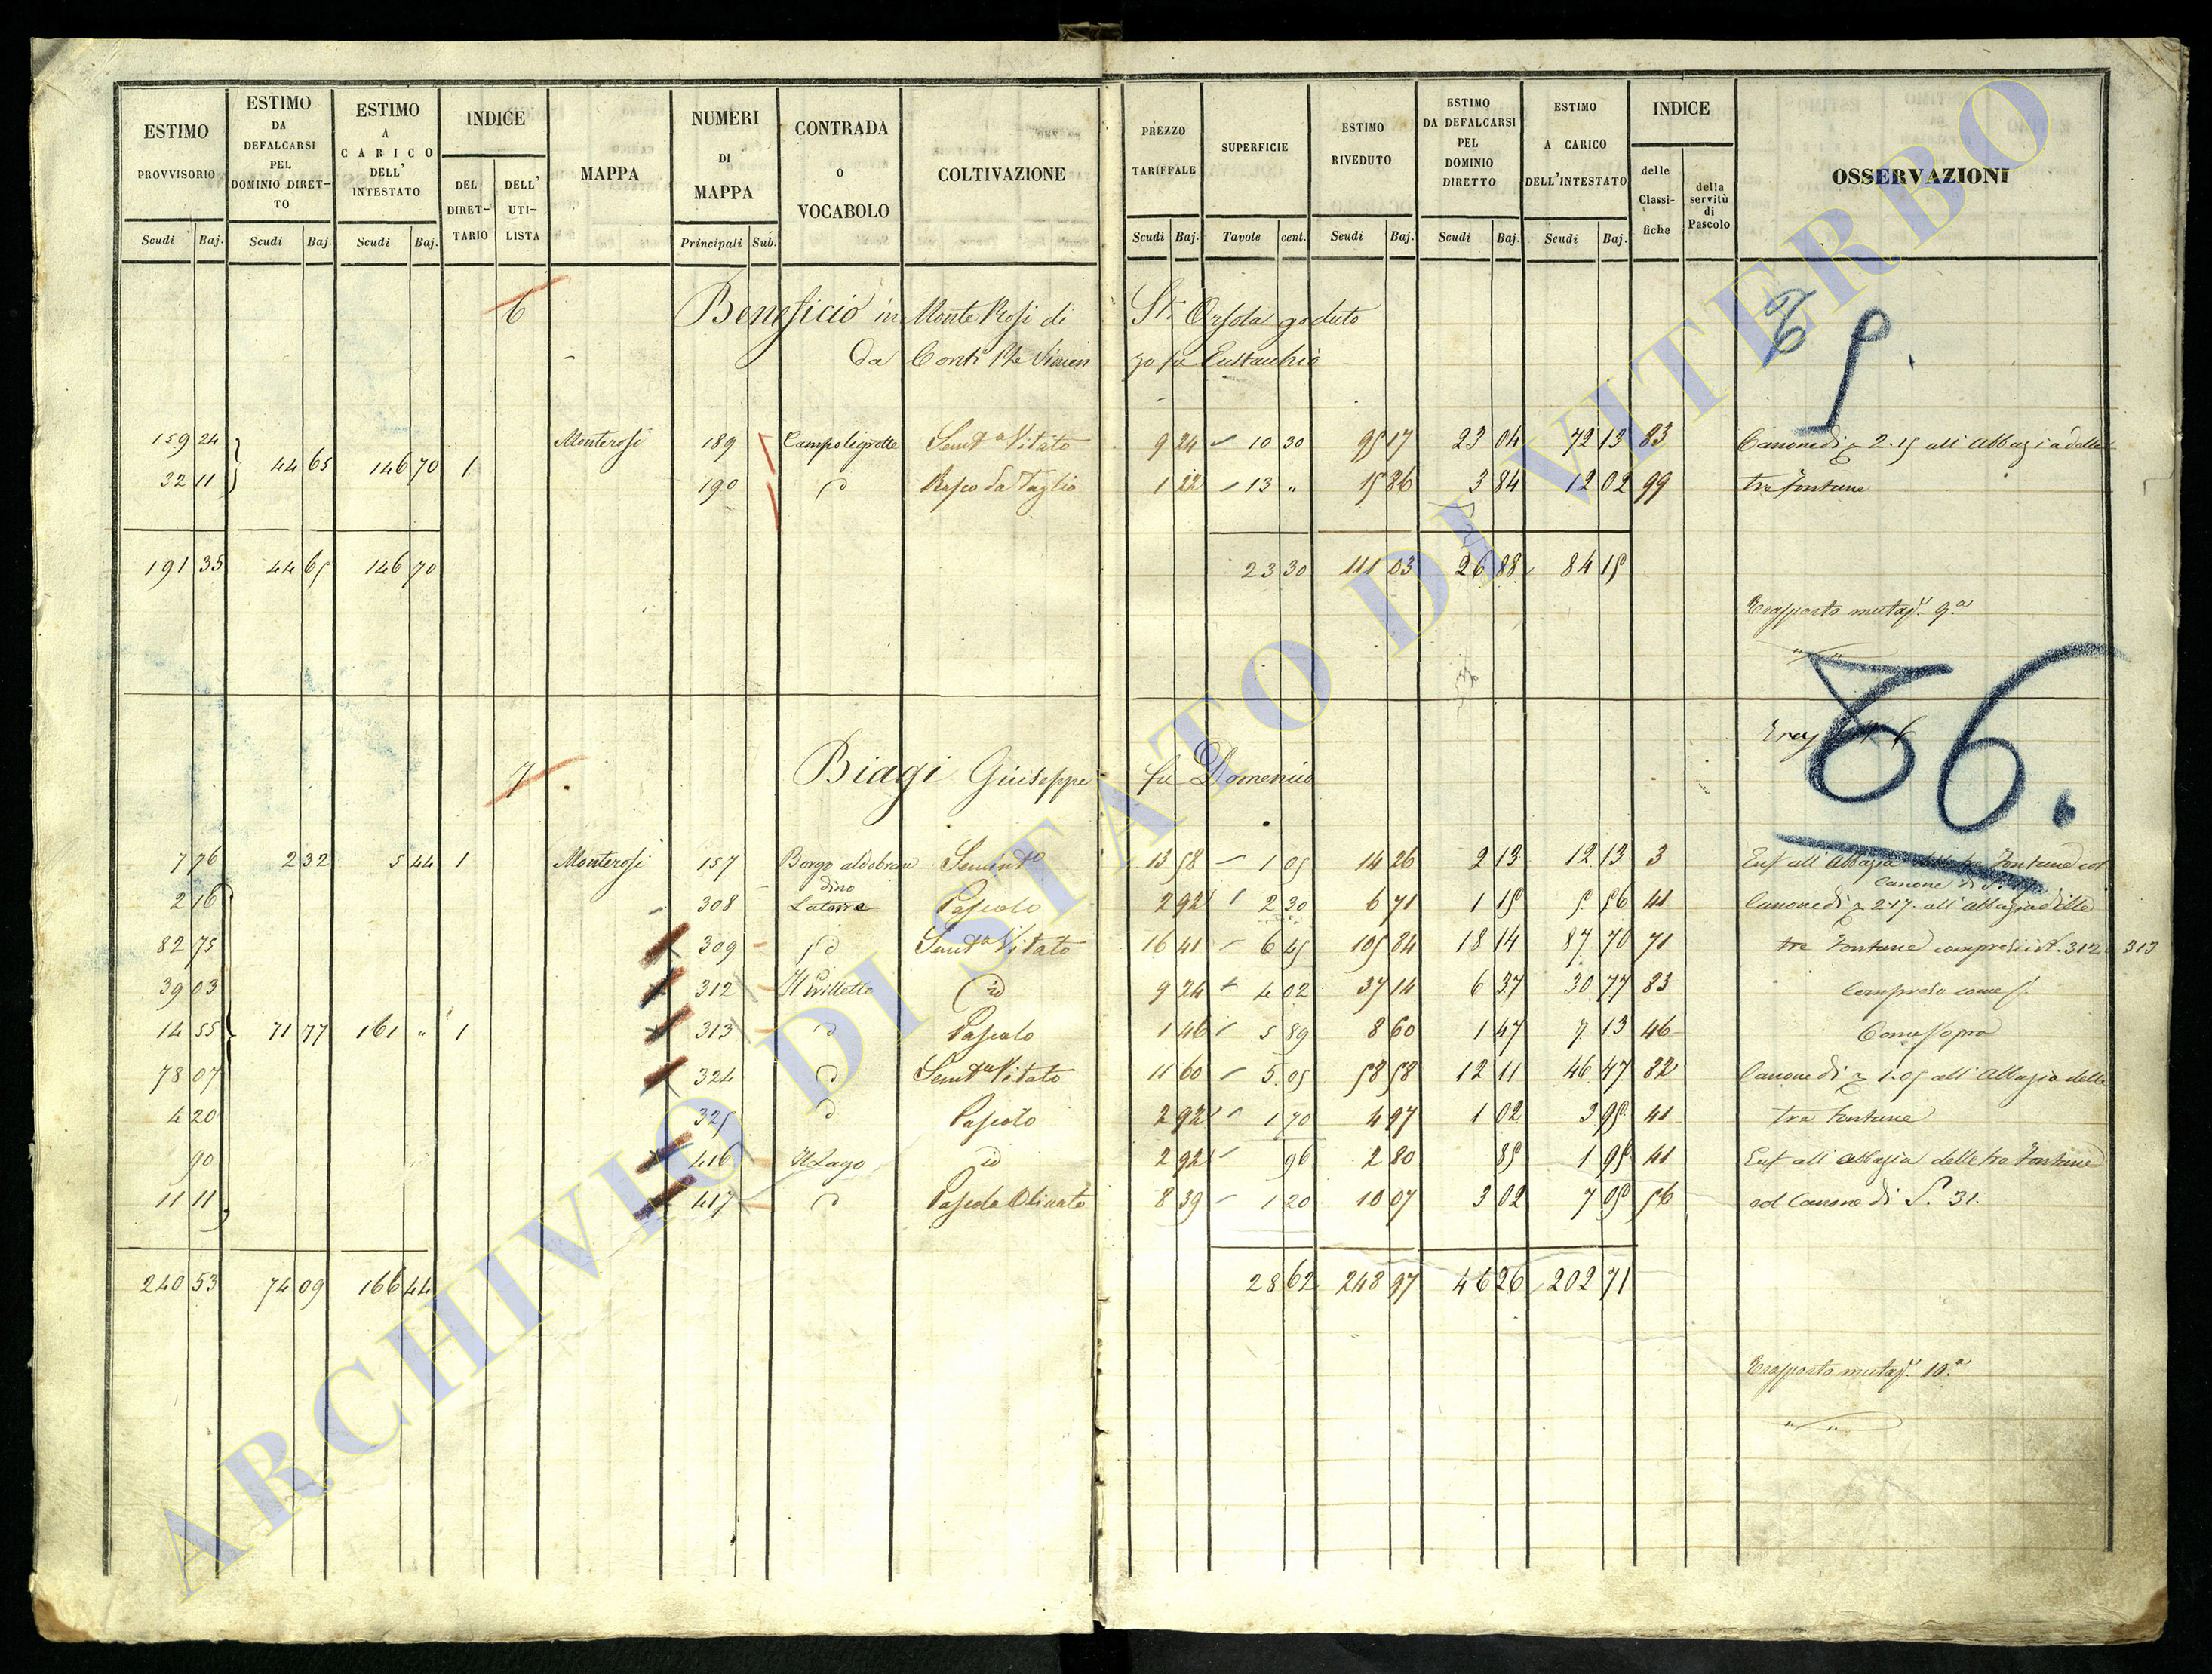 ESTIMO PROVVISORIO | ESTIMO DA DEFALCARSI PEL DOMINIO DIRETTO | ESTIMO A CARICO DELL' INTESTATO | INDICE DEL DIRETTARIO | DELL' UTILISTA | MAPPA | NUMERI DI MAPPA | CONTRADA O VOCABOLO | COLTIVAZIONE | PREZZO TARIFFALE | SUPERFICIE | ESTIMO RIVEDUTO | ESTIMO DA DEFALCARSI PEL DOMINIO DIRETTO | ESTIMO A CARICO DELL'INTESTATO | INDICE delle Classifiche | della servitù di Pascolo | OSSERVAZIONI
Scudi Baj. | Scudi Baj. | Scudi Baj. | Principali Sub. | Scudi Baj. | Tavole cent. | Scudi Baj. | Scudi Baj. | Scudi Baj.
6 Beneficio in Monte Rosi di St. Orsola goduto
da Conti fu Eustachio
159 24 | 44 65 | 146 70 | 1 | Monterosi | 189 | Campo le grotte | Semto Vitato | 9 24 | 10 30 | 95 17 | 23 04 | 72 13 | 83 | Canone di 2.15 all' Abbazia delle
32 11 | 190 | id | Bosco da Taglio | 1 22 | 13 " | 15 86 | 3 84 | 12 02 | 99 | tre fontane
191 35 | 44 65 | 146 70 | 23 30 | 111 03 | 26 88 | 84 15
Trasporto mutaz. 9.a
86.
7 Biagi Giuseppe fu Domenico
7 76 | 2 32 | 5 44 | 1 | Monterosi | 157 | Borgo aldobrandino | Semto | 13 58 | 1 05 | 14 26 | 2 13 | 12 13 | 3 | Enf all' Abbazia delle tre Fontane col
Canone di
2 16 | 308 | Latorre | Pascolo | 2 92 | 2 30 | 6 71 | 1 15 | 5 56 | 41 | Canone di 2.17. all' abbazia delle
82 75 | 309 | id | Semto Vitato | 16 41 | 6 45 | 105 84 | 18 14 | 87 70 | 71 | tre Fontane compresi i N. 312 313
39 03 | 312 | id | 9 24 | 4 02 | 37 14 | 6 37 | 30 77 | 83 | Compreso come S.
14 55 | 71 77 | 161 " | 1 | 313 | id | Pascolo | 1 46 | 5 89 | 8 60 | 1 47 | 7 13 | 46 | Come Sopra
78 07 | 324 | id | Semto Vitato | 11 60 | 5 05 | 58 58 | 12 11 | 46 47 | 82 | Canone di 1.05 all' Abbazia delle
4 20 | 325 | id | Pascolo | 2 92 | 1 70 | 4 97 | 1 02 | 3 95 | 41 | tre Fontane
90 | 416 | Il Lago | id | 2 92 | 96 | 2 80 | 85 | 1 95 | 41 | Enf all' abbazia delle tre Fontane
11 11 | 417 | id | Pascolo Olivato | 8 39 | 1 20 | 10 07 | 3 02 | 7 05 | 56 | col Canone di S. 31.
240 53 | 74 09 | 166 44 | 28 62 | 248 97 | 46 26 | 202 71
Trasporto mutaz. 10.a
ARCHIVIO DI STATO DI VITERBO